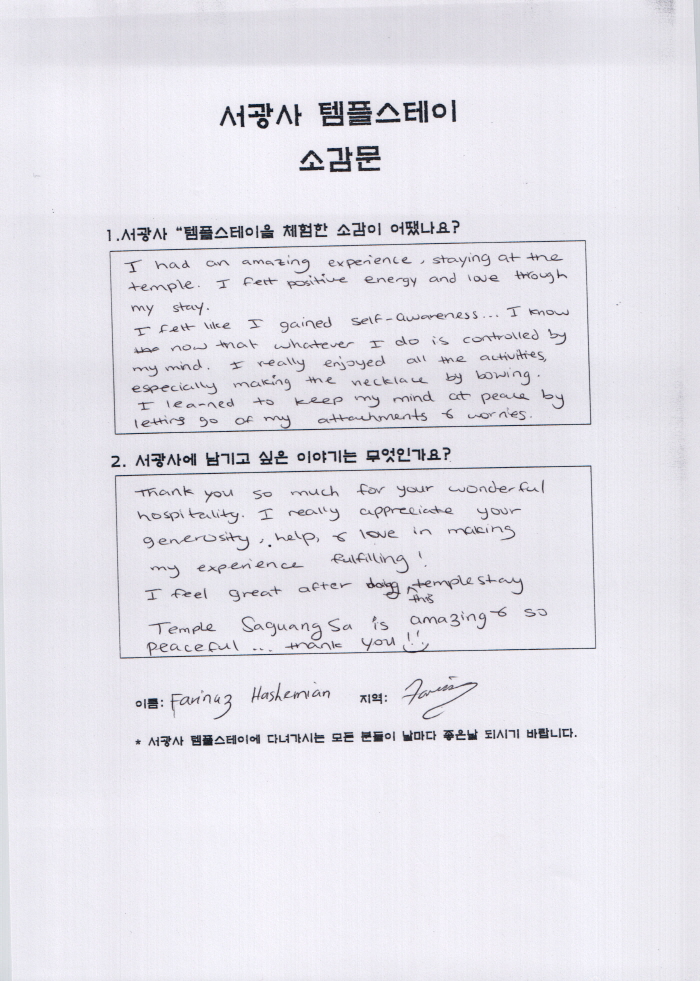 서광사 템플스테이
소감문
1.서광사 "템플스테이을 체험한 소감이 어땠나요?
I had an amazing experience, staying at the
temple. I felt positive energy and love through
my stay.
I felt like I gained self-awareness... I know
now that whatever I do is controlled by
my mind. I really enjoyed all the activities,
especially making the necklace by bowing.
I learned to keep my mind at peace by
letting go of my attachments & worries.
2. 서광사에 남기고 싶은 이야기는 무엇인가요?
Thank you so much for your wonderful
hospitality. I really appreciate your
generosity, help, & love in making
my experience fulfilling!
I feel great after this templestay
Temple SaguangSa is amazing & so
peaceful... thank you!!
이름: Farinaz Hashemian 지역:
* 서광사 템플스테이에 다녀가시는 모든 분들이 날마다 좋은날 되시기 바랍니다.